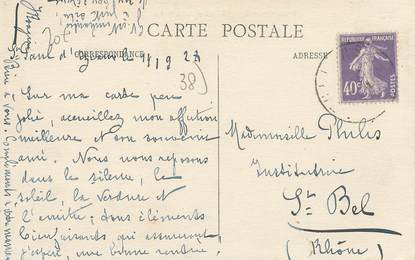 CARTE POSTALE
CORRESPONDANCE
ADRESSE
St Paul d'
11/9 27
38
Sur ma carte peu
jolie, accueillez mon affection
meilleure et son souvenir
ami. Nous nous reposons
dans le silence, le
soleil, la verdure et
l'amitié; tous éléments
bienfaisants qui assureront,
j'espère, une bonne rentrée.
Bien à vous. Compliments à
REPUBLIQUE FRANÇAISE
40c
POSTES
Mademoiselle Philis
Institutrice
St Bel
(Rhône)